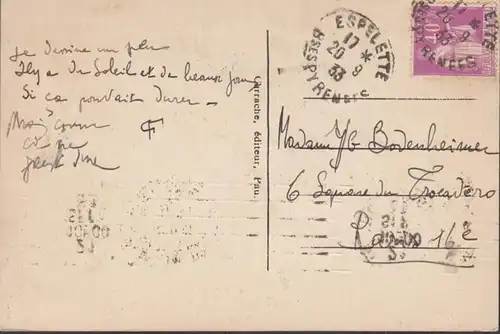 je dessine un peu
Il y a du Soleil et de beaux jours
Si ça pouvait durer -
Mais comme
Carrache, éditeur, Pau.
ESPELETTE
17 *
20 - 9
33
BSES PYRENEES
40
Madame J/b Bodenheimer
6 Square du Trocadero
Paris 16e